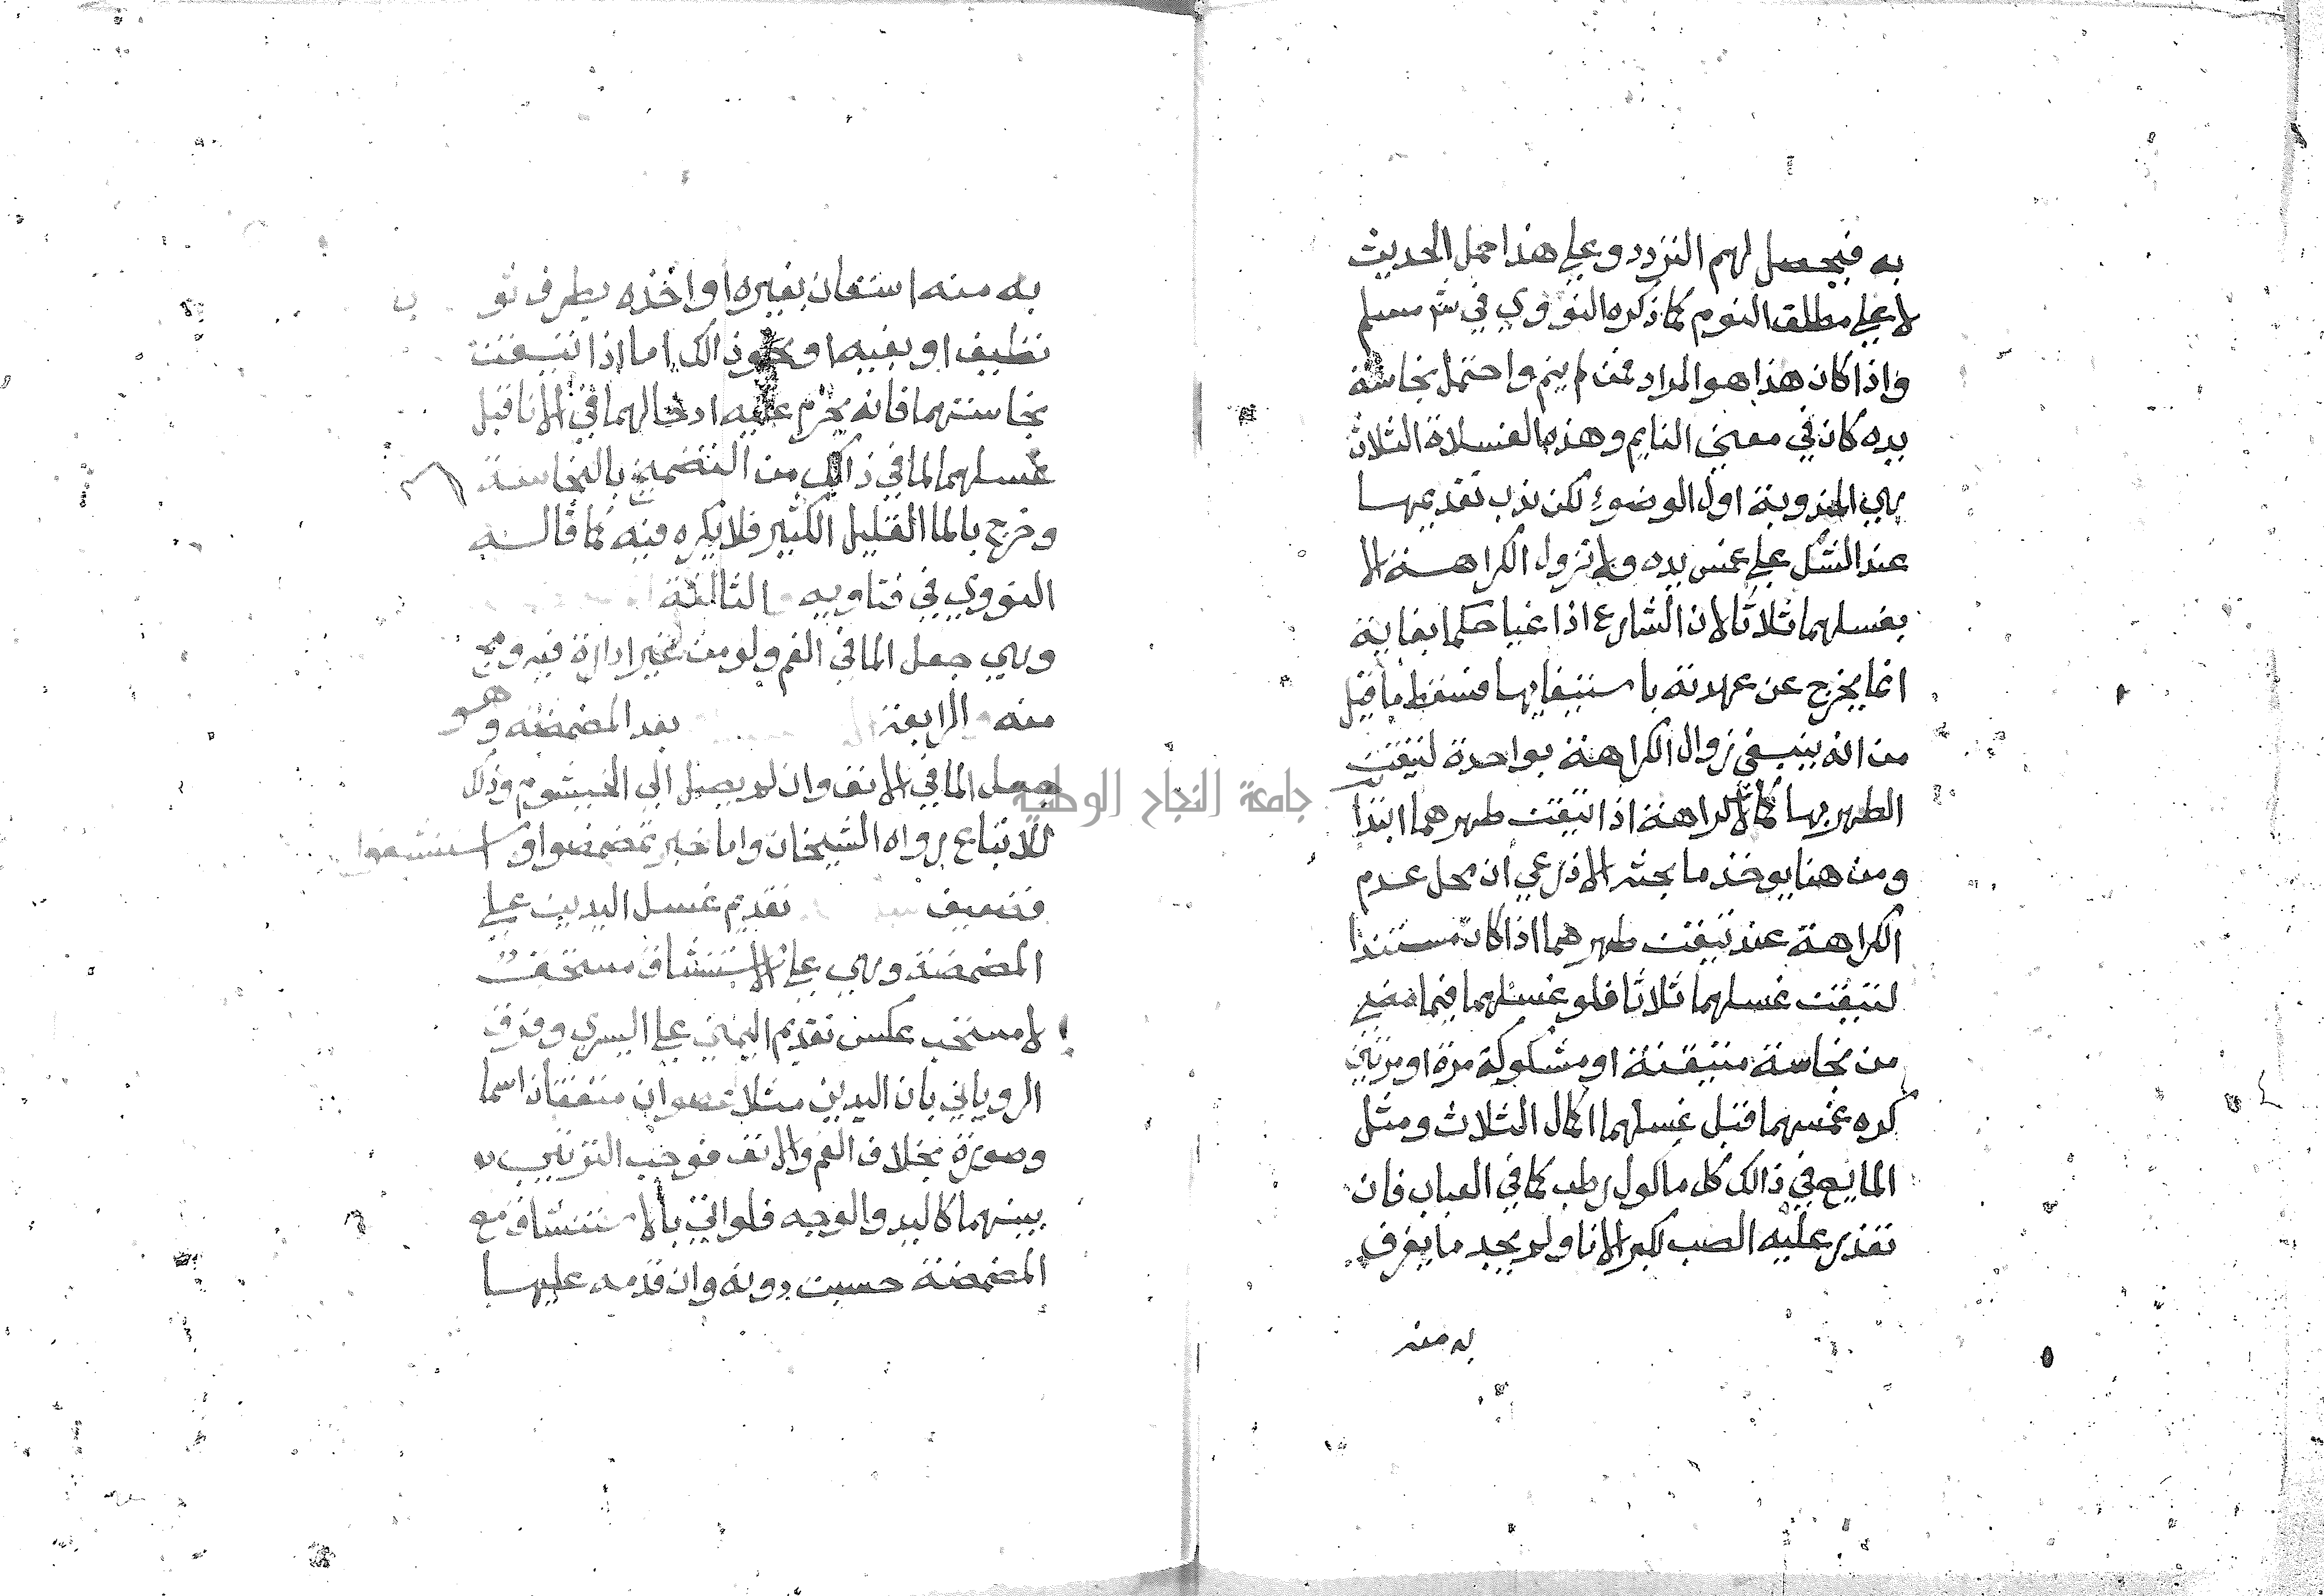 به فيحصل لهم التردد وعلي هذا حمل الحديث
لا علي مطلق النوم كما ذكره النووي في شم مسلم
واذا كان هذا هو المراد فمن لم ينم واحتمل نجاسة
يده كان في معني النايم وهذه الغسلاة الثلاث
هي المندوبة اول الوضوء لكن ندب تقديمها
عند الشك علي غمس يده ولا تزول الكراهة الا
بغسلهما ثلاثا لان الشارع اذا غيا حكما بغاية
انما يخرج عن عهدته باستيفايها فسقط ما قيل
من انه ينبغي زوال الكراهة بواحدة لتيقن
الطهر بها كما لا كراهة اذا تيقن طهرهما ابتدا
ومن هنا يوخذ ما بحثه الاذرعي ان محل عدم
الكراهة عند تيقن طهرهما اذا كان مستندا
لتيقن غسلهما ثلاثا فلو غسلهما فيما مضي
من نجاسة متيقنة او مشكوكة مرة او مرتين
كره غمسهما قبل غسلهما اكمال الثلاث ومثل
المايع في ذالك كل ماكول رطب كما في العباب فان
تعذر عليه الصب لكبر الانا ولم يجد ما يغرف
به منه
به منه استعان بغيره او اخذه بطرف ثوب
نظيف او بفيه او نحو ذالك اما اذا تيقن
نجاستهما فانه يحرم عليه ادخالهما في الانا قبل
غسلهما لما في ذالك من التضمخ بالنجاسة
وخرج بالما القليل الكثير فلا يكره فيه كما قاله
النووي في فتاويه والثالثة
وهي جعل الما في الفم ولو من غير ادارة فيه ومج
منه والرابعة بعد المضمضة وهو
جعل الما في الانف وان لم يصل الي الخيشوم وذلك
للاتباع رواه الشيخان واما خبر تمضمضوا واستنشقوا
فضعيف تقديم غسل اليدين علي
المضمضة وهي علي الاستنشاق مستحق
لا مستحب عكس تقديم اليمني علي اليسري وفرق
الروياني بان اليدين مثلا عضوان متفقان اسما
وصورة بخلاف الفم والانف فوجب الترتيب
بينهما كاليد والوجه فلو اتي بالاستنشاق مع
المضمضة حسبت دونه وان قدمه عليها
جامعة النجاح الوطنية